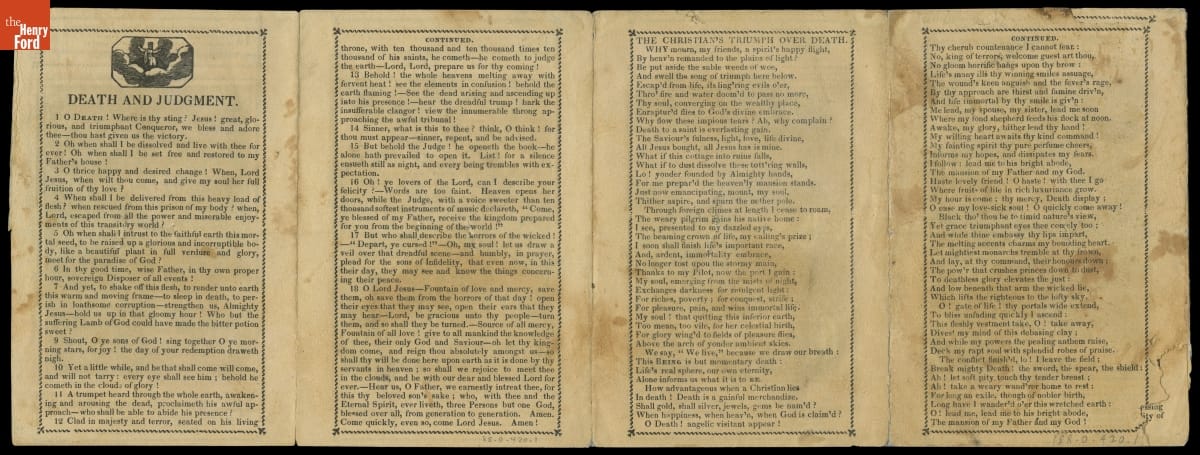 the
Henry
Ford
DEATH AND JUDGMENT.
1 O DEATH! Where is thy sting? Jesus! great, glo-
rious, and triumphant Conqueror, we bless and adore
thee—thou hast given us the victory.
2 Oh when shall I be dissolved and live with thee for
ever! Oh when shall I be set free and restored to my
Father's house!
3 O thrice happy and desired change! When, Lord
Jesus, when wilt thou come, and give my soul her full
fruition of thy love?
4 When shall I be delivered from this heavy load of
flesh? when rescued from this prison of my body? when,
Lord, escaped from all the power and miserable enjoy-
ments of this transitory world?
5 Oh when shall I intrust to the faithful earth this mor-
tal seed, to be raised up a glorious and incorruptible bo-
dy, like a beautiful plant in full verdure and glory,
meet for the paradise of God?
6 In thy good time, wise Father, in thy own proper
hour, sovereign Disposer of all events!
7 And yet, to shake off this flesh, to render unto earth
this warm and moving frame—to sleep in death, to per-
ish in loathsome corruption—strengthen us, Almighty
Jesus—hold us up in that gloomy hour! Who but the
suffering Lamb of God could have made the bitter potion
sweet?
9 Shout, O ye sons of God! sing together O ye mor-
ning stars, for joy! the day of your redemption draweth
nigh.
10 Yet a little while, and he that shall come will come,
and will not tarry: every eye shall see him; behold he
cometh in the clouds of glory!
11 A trumpet heard through the whole earth, awaken-
ing and arousing the dead, proclaimeth his awful ap-
proach—who shall be able to abide his presence?
12 Clad in majesty and terror, seated on his living
CONTINUED.
throne, with ten thousand and ten thousand times ten
thousand of his saints, he cometh—he cometh to judge
the earth—Lord, Lord, prepare us for thy coming!
13 Behold! the whole heavens melting away with
fervent heat! see the elements in confusion! behold the
earth flaming!—See the dead arising and ascending up
into his presence!—hear the dreadful trump! hark the
insufferable clangor! view the innumerable throng ap-
proaching the awful tribunal!
14 Sinner, what is this to thee? think, O think! for
thou must appear—sinner, repent, and be advised.
15 But behold the Judge! he openeth the book—he
alone hath prevailed to open it. List! for a silence
ensueth still as night, and every being trembles with ex-
pectation.
16 Oh! ye lovers of the Lord, can I describe your
felicity?—Words are too faint. Heaven opens her
doors, while the Judge, with a voice sweeter than ten
thousand softest instruments of music declareth, "Come,
ye blessed of my Father, receive the kingdom prepared
for you from the beginning of the world!"
17 But who shall describe the horrors of the wicked!
—"Depart, ye cursed!"—Oh, my soul! let us draw a
veil over that dreadful scene—and humbly, in prayer,
plead for the sons of Infidelity, that even now, in this
their day, they may see and know the things concern-
ing their peace.
18 O Lord Jesus—Fountain of love and mercy, save
them, oh save them from the horrors of that day! open
their eyes that they may see, open their ears that they
may hear—Lord, be gracious unto thy people—turn
them, and so shall they be turned.—Source of all mercy,
Fountain of all love! give to all mankind the knowledge
of thee, their only God and Saviour—oh let thy king-
dom come, and reign thou absolutely amongst us—so
shall thy will be done here upon earth as it is done by thy
servants in heaven; so shall we rejoice to meet thee
in the clouds, and be with our dear and blessed Lord for
ever.—Hear us, O Father, we earnestly intreat thee, for
this thy beloved son's sake; who, with thee and the
Eternal Spirit, ever liveth, three Persons but one God,
blessed over all, from generation to generation. Amen.
Come quickly, even so, come Lord Jesus. Amen!
58.0.420.1
THE CHRISTIAN'S TRIUMPH OVER DEATH.
WHY mourn, my friends, a spirit's happy flight,
By heav'n remanded to the plains of light?
Be put aside the sable weeds of woe,
And swell the song of triumph here below.
Escap'd from life, its ling'ring evils o'er,
Thro' fire and water doom'd to pass no more,
Thy soul, converging on the wealthy place,
Enraptur'd flies to God's divine embrace.
Why flow these impious tears? Ah, why complain?
Death to a saint is everlasting gain.
The Saviour's fulness, light, love, life divine,
All Jesus bought, all Jesus has is mine.
What if this cottage into ruins falls,
What if to dust dissolve these tott'ring walls,
Lo! yonder founded by Almighty hands,
For me prepar'd the heav'nly mansion stands.
Just now emancipating, mount, my soul,
Thither aspire, and spurn the nether pole.
Through foreign climes at length I cease to roam,
The weary pilgrim gains his native home:
I see, presented to my dazzled eyes,
The beaming crown of life, my calling's prize;
I soon shall finish life's important race,
And, ardent, immortality embrace,
No longer tost upon the stormy main,
Thanks to my Pilot, now the port I gain:
My soul, emerging from the mists of night,
Exchanges darkness for refulgent light:
For riches, poverty; for conquest, strife;
For pleasure, pain, and wins immortal life.
My soul! that quitting this inferior earth,
Too mean, too vile, for her celestial birth,
For glory wing'd to fields of pleasure flies,
Above the arch of yonder ambient skies.
We say, "We live," because we draw our breath:
This BEING is but momentary death:
Life's real sphere, our own eternity,
Alone informs us what it is to BE.
How advantageous when a Christian lies
In death! Death is a gainful merchandize.
Shall gold, shall silver, jewels, gems be nam'd?
When happiness, when heav'n, when God is claim'd?
O Death! angelic visitant appear!
CONTINUED.
Thy cherub countenance I cannot fear:
No, king of terrors, welcome guest art thou,
No gloom horrific hangs upon thy brow:
Life's many ills thy winning smiles assuage,
The wound's keen anguish and the fever's rage,
By thy approach are thirst and famine driv'n,
And life immortal by the smile is giv'n:
Me leaf, my spouse, my sister, lead me soon
Where my fond shepherd feeds his flock at noon.
Awake, my glory, hither lead thy hand!
My willing heart awaits thy kind command!
My fainting spirit thy pure perfume cheers,
Informs my hopes, and dissipates my fears.
I follow: lead me to his bright abode,
The mansion of my Father and my God.
Haste lovely friend! O haste! with thee I go
Where fruits of life in rich luxuriance grow.
My hour is come: thy mercy, Death display;
O ease my love-sick soul! O quickly come away!
Black tho' thou be to timid nature's view,
Yet grace triumphant eyes thee comely too;
And while thine embassy thy lips impart,
The melting accents charm my bounding heart.
Let mightiest monarchs tremble at thy frown,
And lay, at thy command, their honours down:
The pow'r that crushes princes down to dust,
To deathless glory elevates the just:
And low beneath that arm the wicked lie,
Which lifts the righteous to the lofty sky.
O! gate of life! thy portals wide extend,
To bliss unfading quickly I ascend:
This fleshly vestment take, O! take away;
Divest my mind of this debasing clay;
And while my powers the pealing anthem raise,
Deck my rapt soul with splendid robes of praise.
The conflict finish'd, lo! I leave the field;
Break mighty Death! the sword, the spear, the shield:
Ah! let soft pity, touch thy tender breast;
Ah! take a weary wand'rer home to rest:
For long an exile, though of nobler birth,
Long have I wander'd o'er this wretched earth:
O! lead me, lead me to his bright abode,
The mansion of my Father and my God!
essing
ity of
58.0.420.1